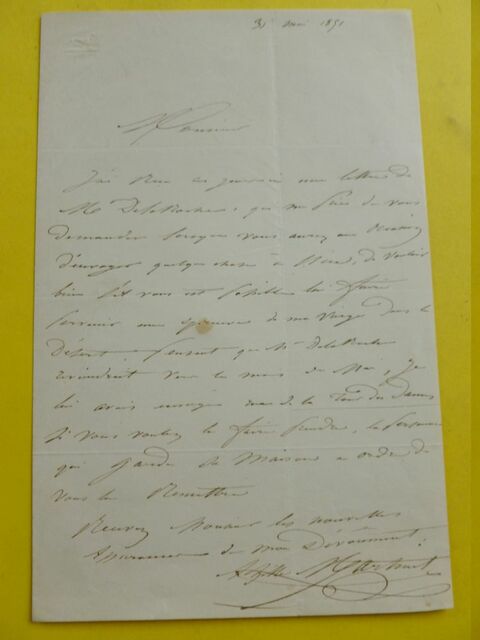 31 mai 1851
Monsieur
J'ai Reçu ces jours-ci une lettre de
Mr Delaroche, qui me prie de vous
demander lorsque vous aurez une occasion
d'envoyer quelque chose à Nice, de vouloir
bien s'il vous est possible lui faire
parvenir une épreuve de ma Vierge dans le
Désert pensant que Mr Delaroche
reviendrait vers le mois de Mai, je
lui avais envoyé rue de la Tour des Dames
Si vous voulez la faire prendre, la personne
qui garde la Maison a ordre de
vous la Remettre
Recevez Monsieur les nouvelles
assurances de mon Dévouement
Achille Martinet